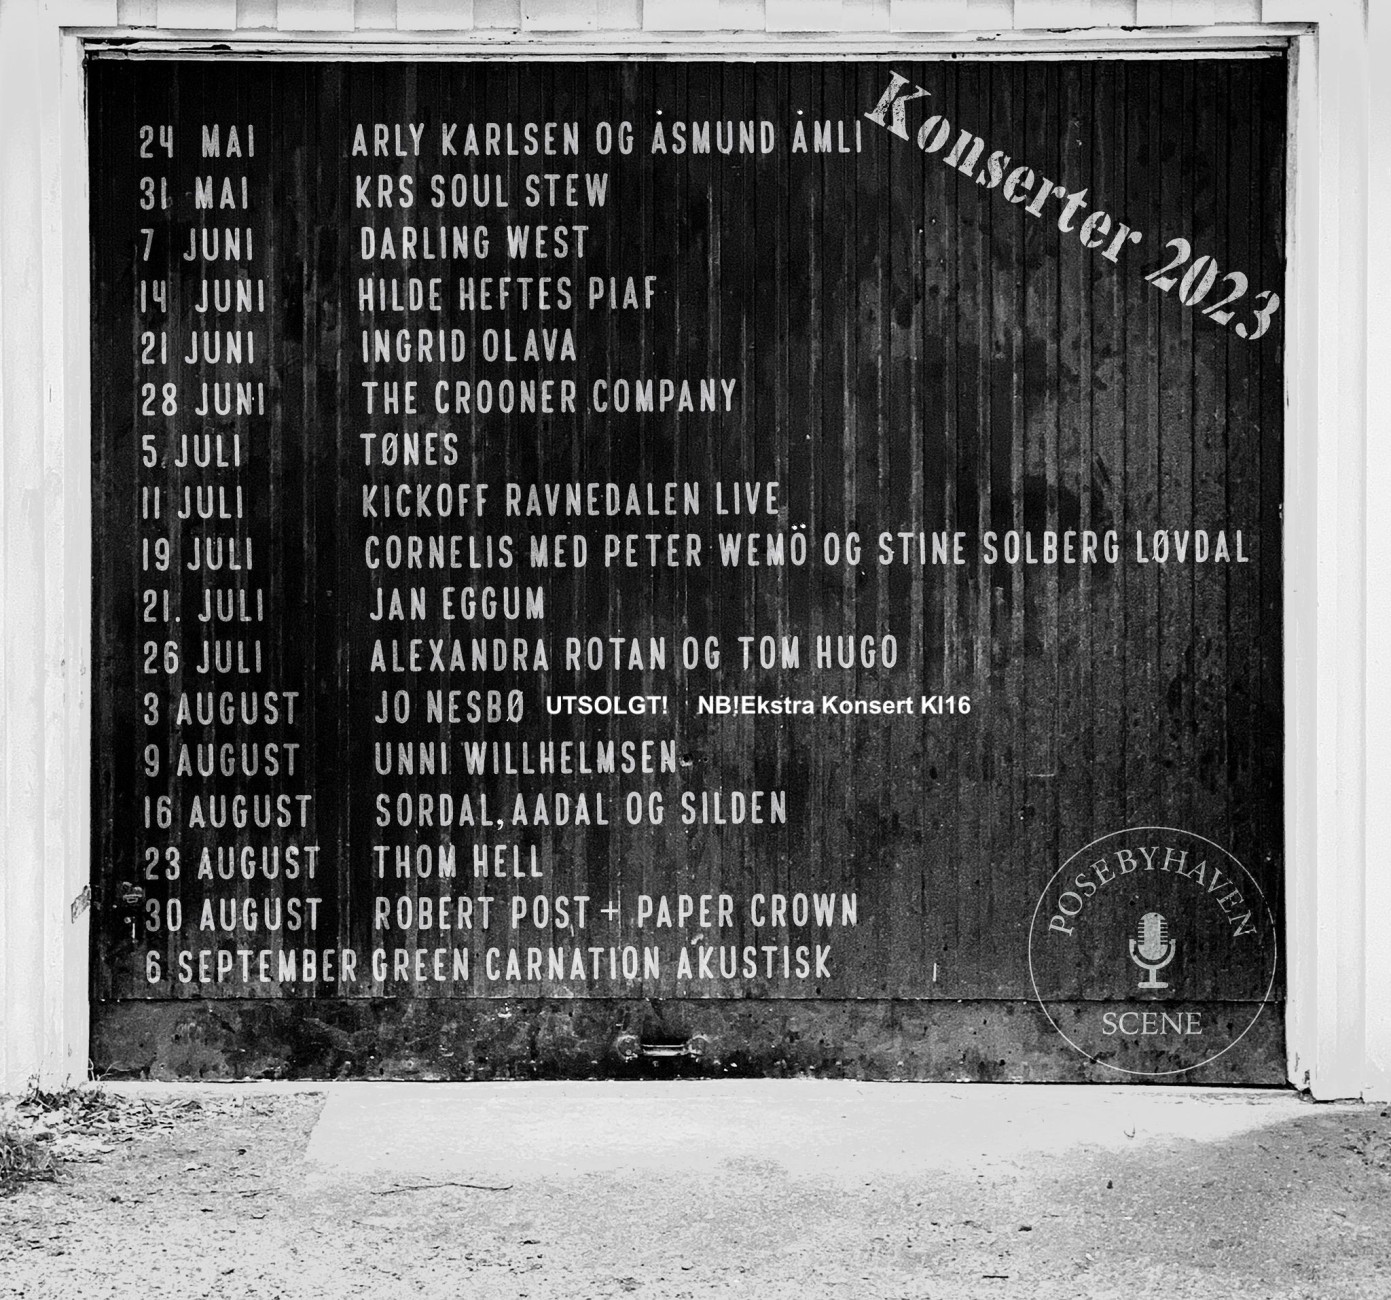 Konserter 2023
24 MAI ARLY KARLSEN OG ÅSMUND ÅMLI
31 MAI KRS SOUL STEW
7 JUNI DARLING WEST
14 JUNI HILDE HEFTES PIAF
21 JUNI INGRID OLAVA
28 JUNI THE CROONER COMPANY
5 JULI TØNES
11 JULI KICKOFF RAVNEDALEN LIVE
19 JULI CORNELIS MED PETER WEMÖ OG STINE SOLBERG LØVDAL
21. JULI JAN EGGUM
26 JULI ALEXANDRA ROTAN OG TOM HUGO
3 AUGUST JO NESBØ UTSOLGT! NB!Ekstra Konsert Kl16
9 AUGUST UNNI WILLHELMSEN
16 AUGUST SORDAL, AADAL OG SILDEN
23 AUGUST THOM HELL
30 AUGUST ROBERT POST + PAPER CROWN
6 SEPTEMBER GREEN CARNATION AKUSTISK
POSEBYHAVEN
SCENE